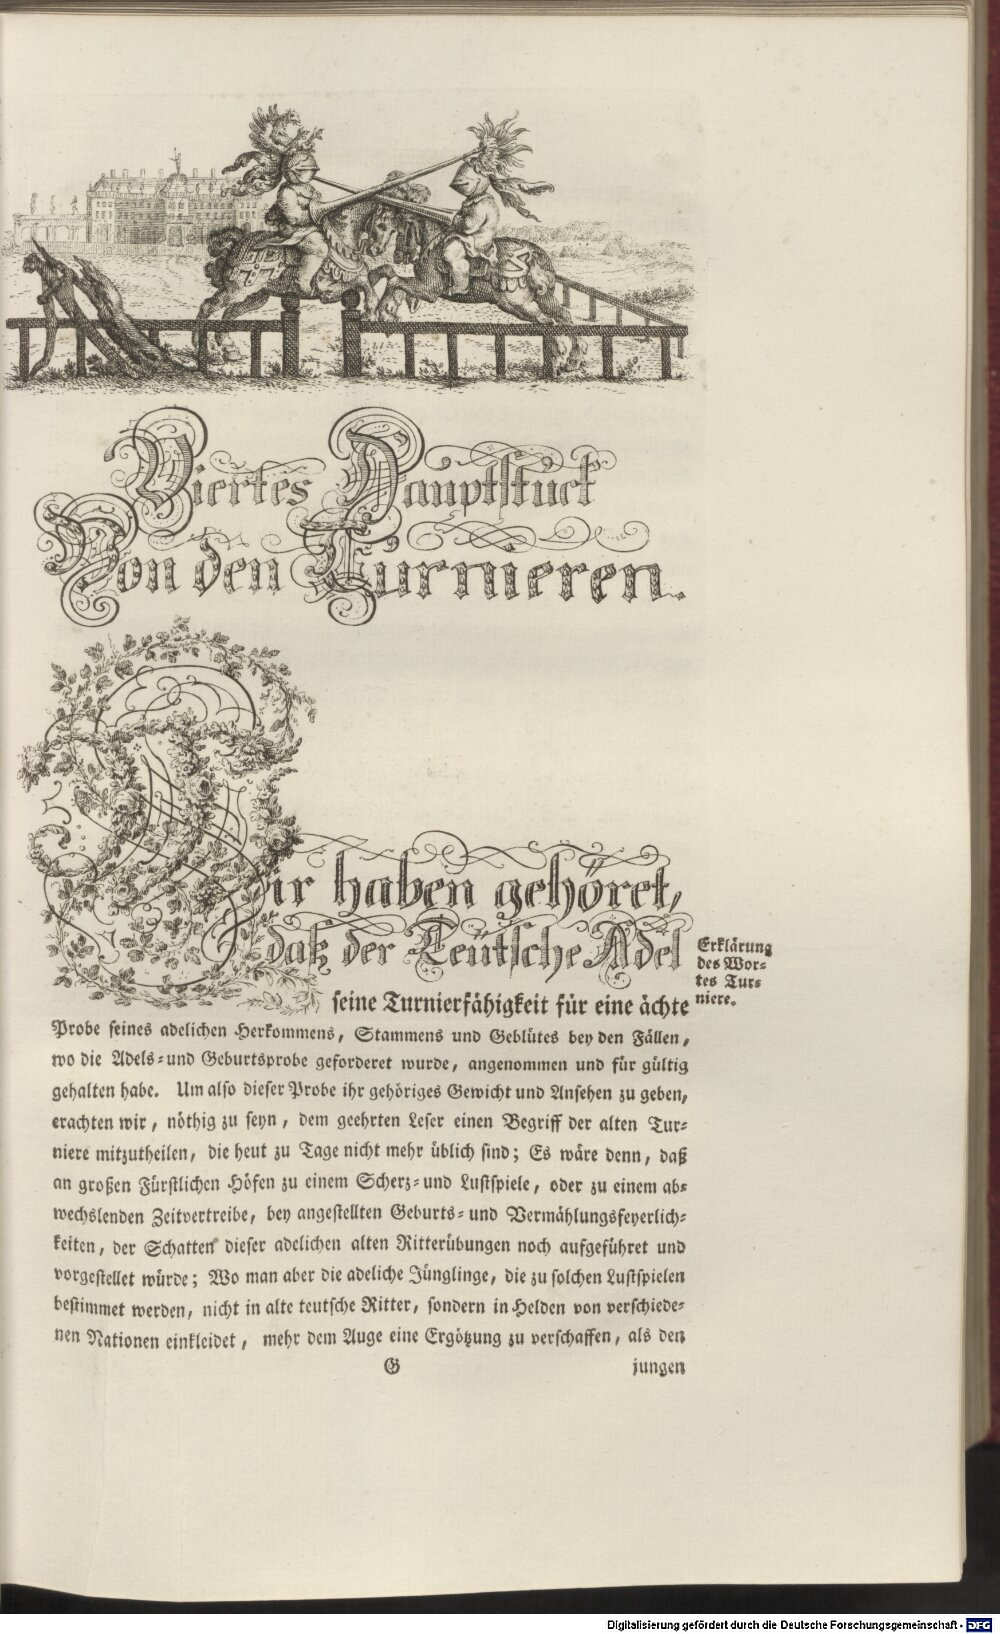 Viertes Hauptstuck
Von den Turnieren.
Wir haben gehöret,
daß der Teütsche Adel
Erklärung
des Wor-
tes Tur-
niere.
seine Turnierfähigkeit für eine ächte
Probe seines adelichen Herkommens, Stammens und Geblütes bey den Fällen,
wo die Adels- und Geburtsprobe geforderet wurde, angenommen und für gültig
gehalten habe. Um also dieser Probe ihr gehöriges Gewicht und Ansehen zu geben,
erachten wir, nöthig zu seyn, dem geehrten Leser einen Begriff der alten Tur-
niere mitzutheilen, die heut zu Tage nicht mehr üblich sind; Es wäre denn, daß
an großen Fürstlichen Höfen zu einem Scherz- und Lustspiele, oder zu einem ab-
wechslenden Zeitvertreibe, bey angestellten Geburts- und Vermählungsfeyerlich-
keiten, der Schatten dieser adelichen alten Ritterübungen noch aufgeführet und
vorgestellet würde; Wo man aber die adeliche Jünglinge, die zu solchen Lustspielen
bestimmet werden, nicht in alte teutsche Ritter, sondern in Helden von verschiede-
nen Nationen einkleidet, mehr dem Auge eine Ergötzung zu verschaffen, als den
G
jungen
Digitalisierung gefördert durch die Deutsche Forschungsgemeinschaft - DFG